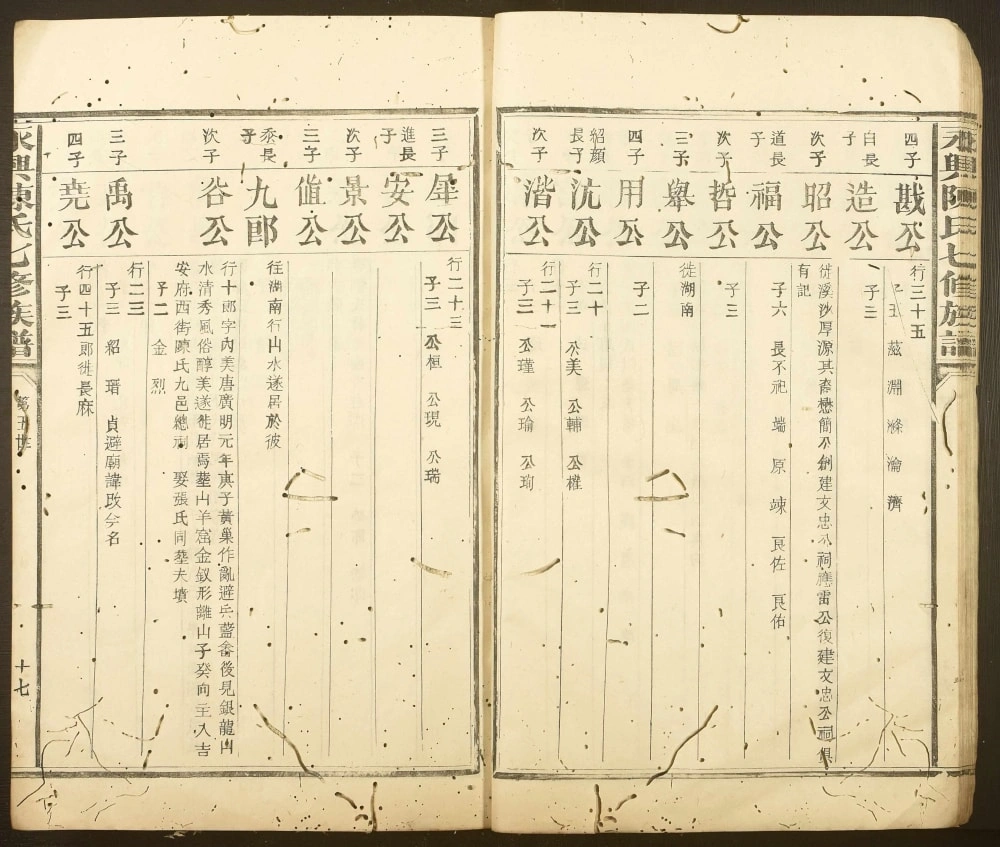 永興陳氏七修族譜
四子
戡公
行三十五
子五 茲 淵 滌 瀹 濟
自長子
造公
子三
次子
昭公
徙溪沙厚源其裔懋簡公創建文忠公祠應雷公復建文忠公祠俱
有記
道長子
福公
子六 長不祀 端 原 竦 良佐 良佑
次子
哲公
子三
三子
舉公
徙湖南
四子
用公
子二
紹顏長子
沈公
行二十
子三 公美 公輔 公權
次子
湝公
行二十一
子三 公瑾 公瑜 公珣
三子
犀公
行二十三
子三 公桓 公現 公瑞
進長子
安公
次子
景公
三子
值公
往湖南行山水遂居於彼
黍長子
九郎
行十郎字內美唐廣明元年庚子黃巢作亂避兵藍㑹後見銀龍山
水清秀風俗醇美遂徙居焉塟山羊窟金釵形離山子癸向主入吉
安府西街陳氏九邑總祠 娶張氏同塟夫墳
次子
谷公
子二 金 烈
三子
禹公
行二三
子三 紹 瑨 貞避廟諱改今名
四子
堯公
行四十五郎徙長麻
子三
永興陳氏七修族譜
第五世
十七